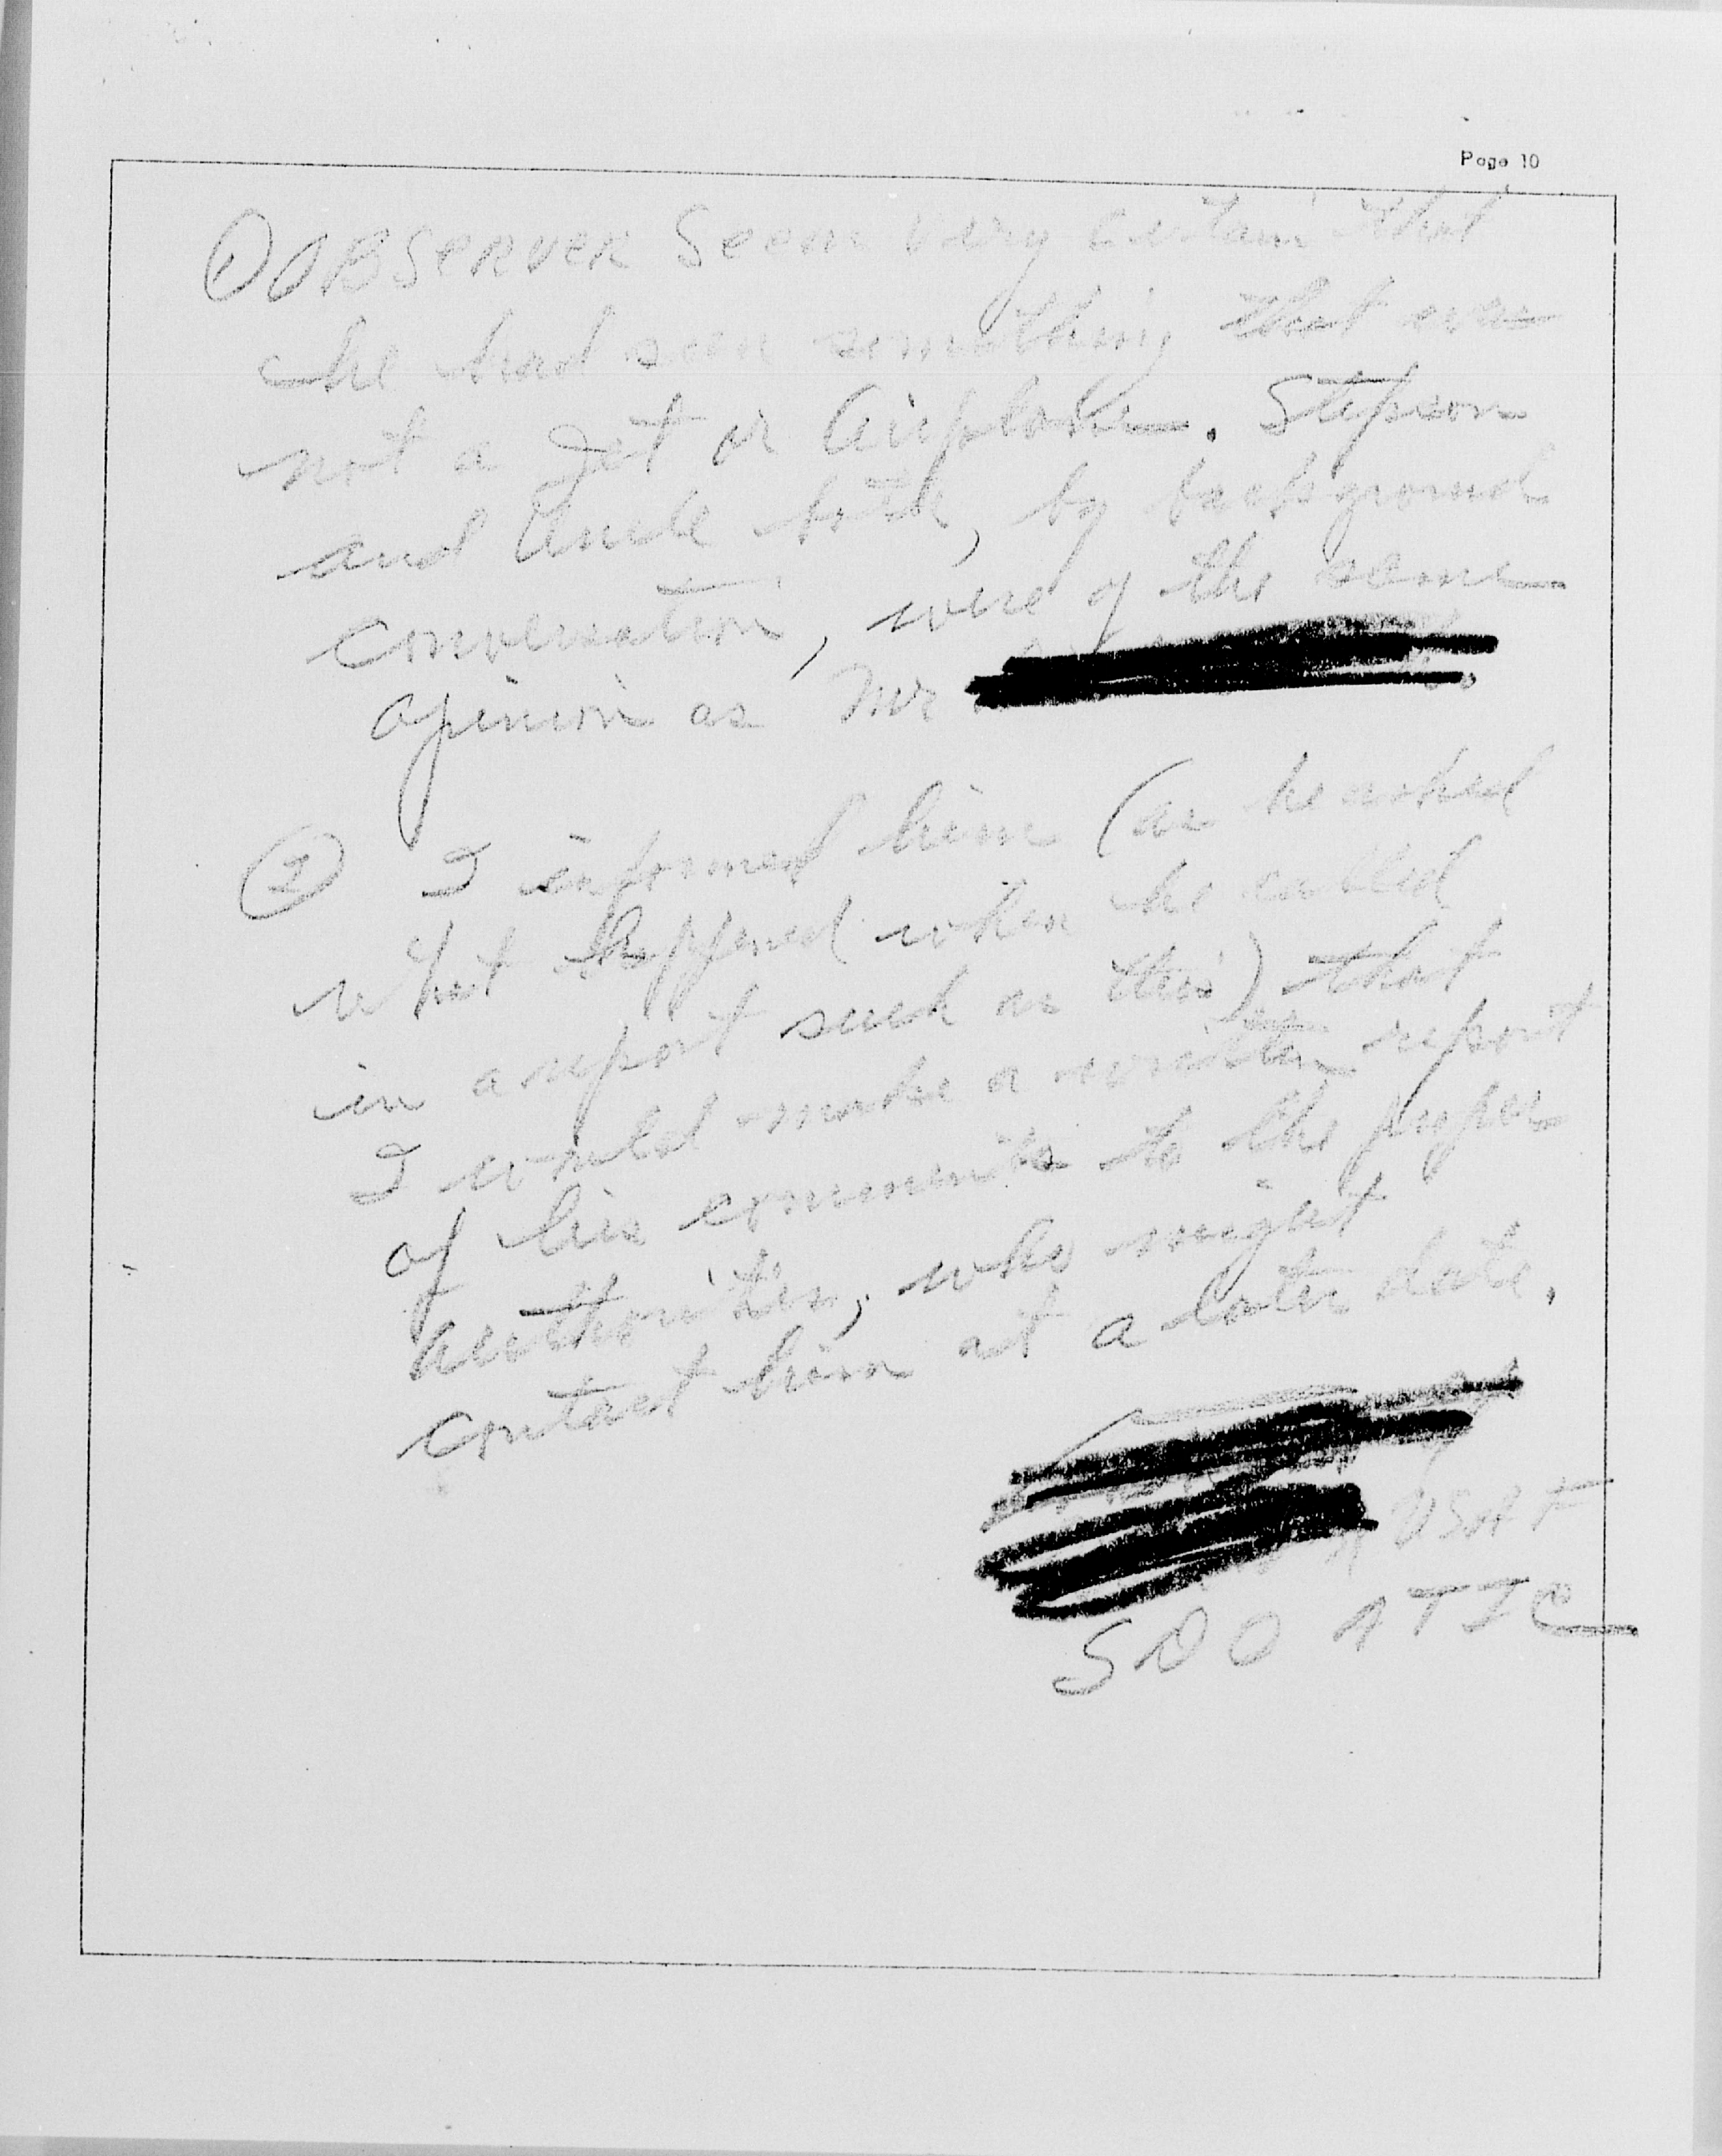 Page 10
① OBSERVER Seem very certain that
he had seen something that was
not a Jet or Airplane. Stepson
and Uncle both, by background
conversation, were of the same
opinion as Mr
② I informed him (as he asked
what happened when he called
in a report such as this) that
I would make a written report
of his comments to the proper
authorities, who might
contact him at a later date.
USAF
SDO ATIC